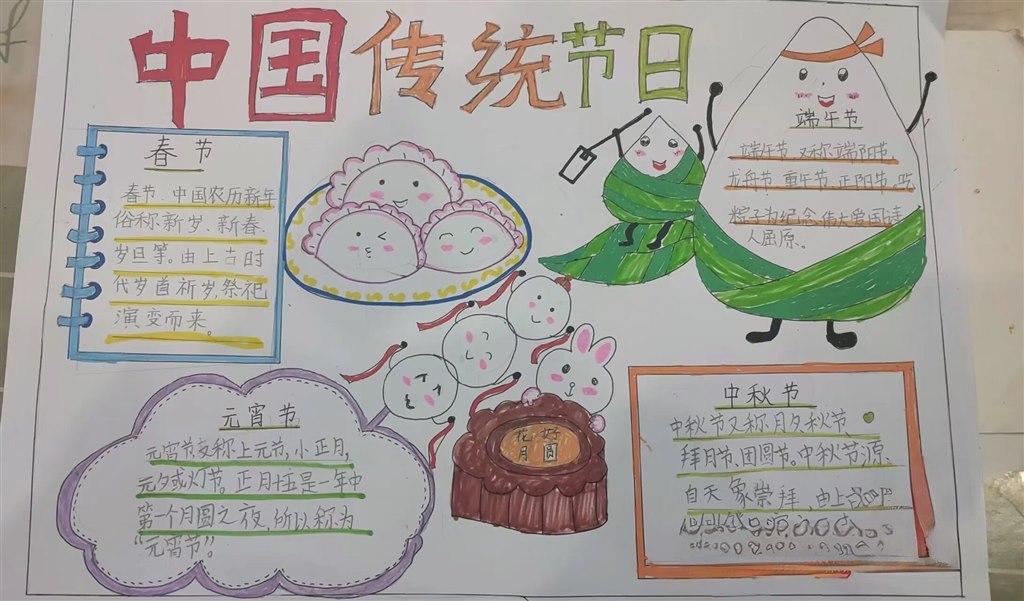 中国传统节日
春节
春节、中国农历新年
俗称新岁、新春、
岁旦等。由上古时
代岁首祈岁,祭祀
演变而来。
端午节
端午节、又称端阳节
龙舟节、重午节、正阳节。吃
粽子为纪念伟大爱国诗
人屈原。
元宵节
元宵节又称上元节,小正月,
元夕或灯节。正月十五是一年中
第一个月圆之夜,所以称为
“元宵节”。
花好
月圆
中秋节
中秋节又称月夕秋节、
拜月节、团圆节。中秋节源
自天象崇拜,由上